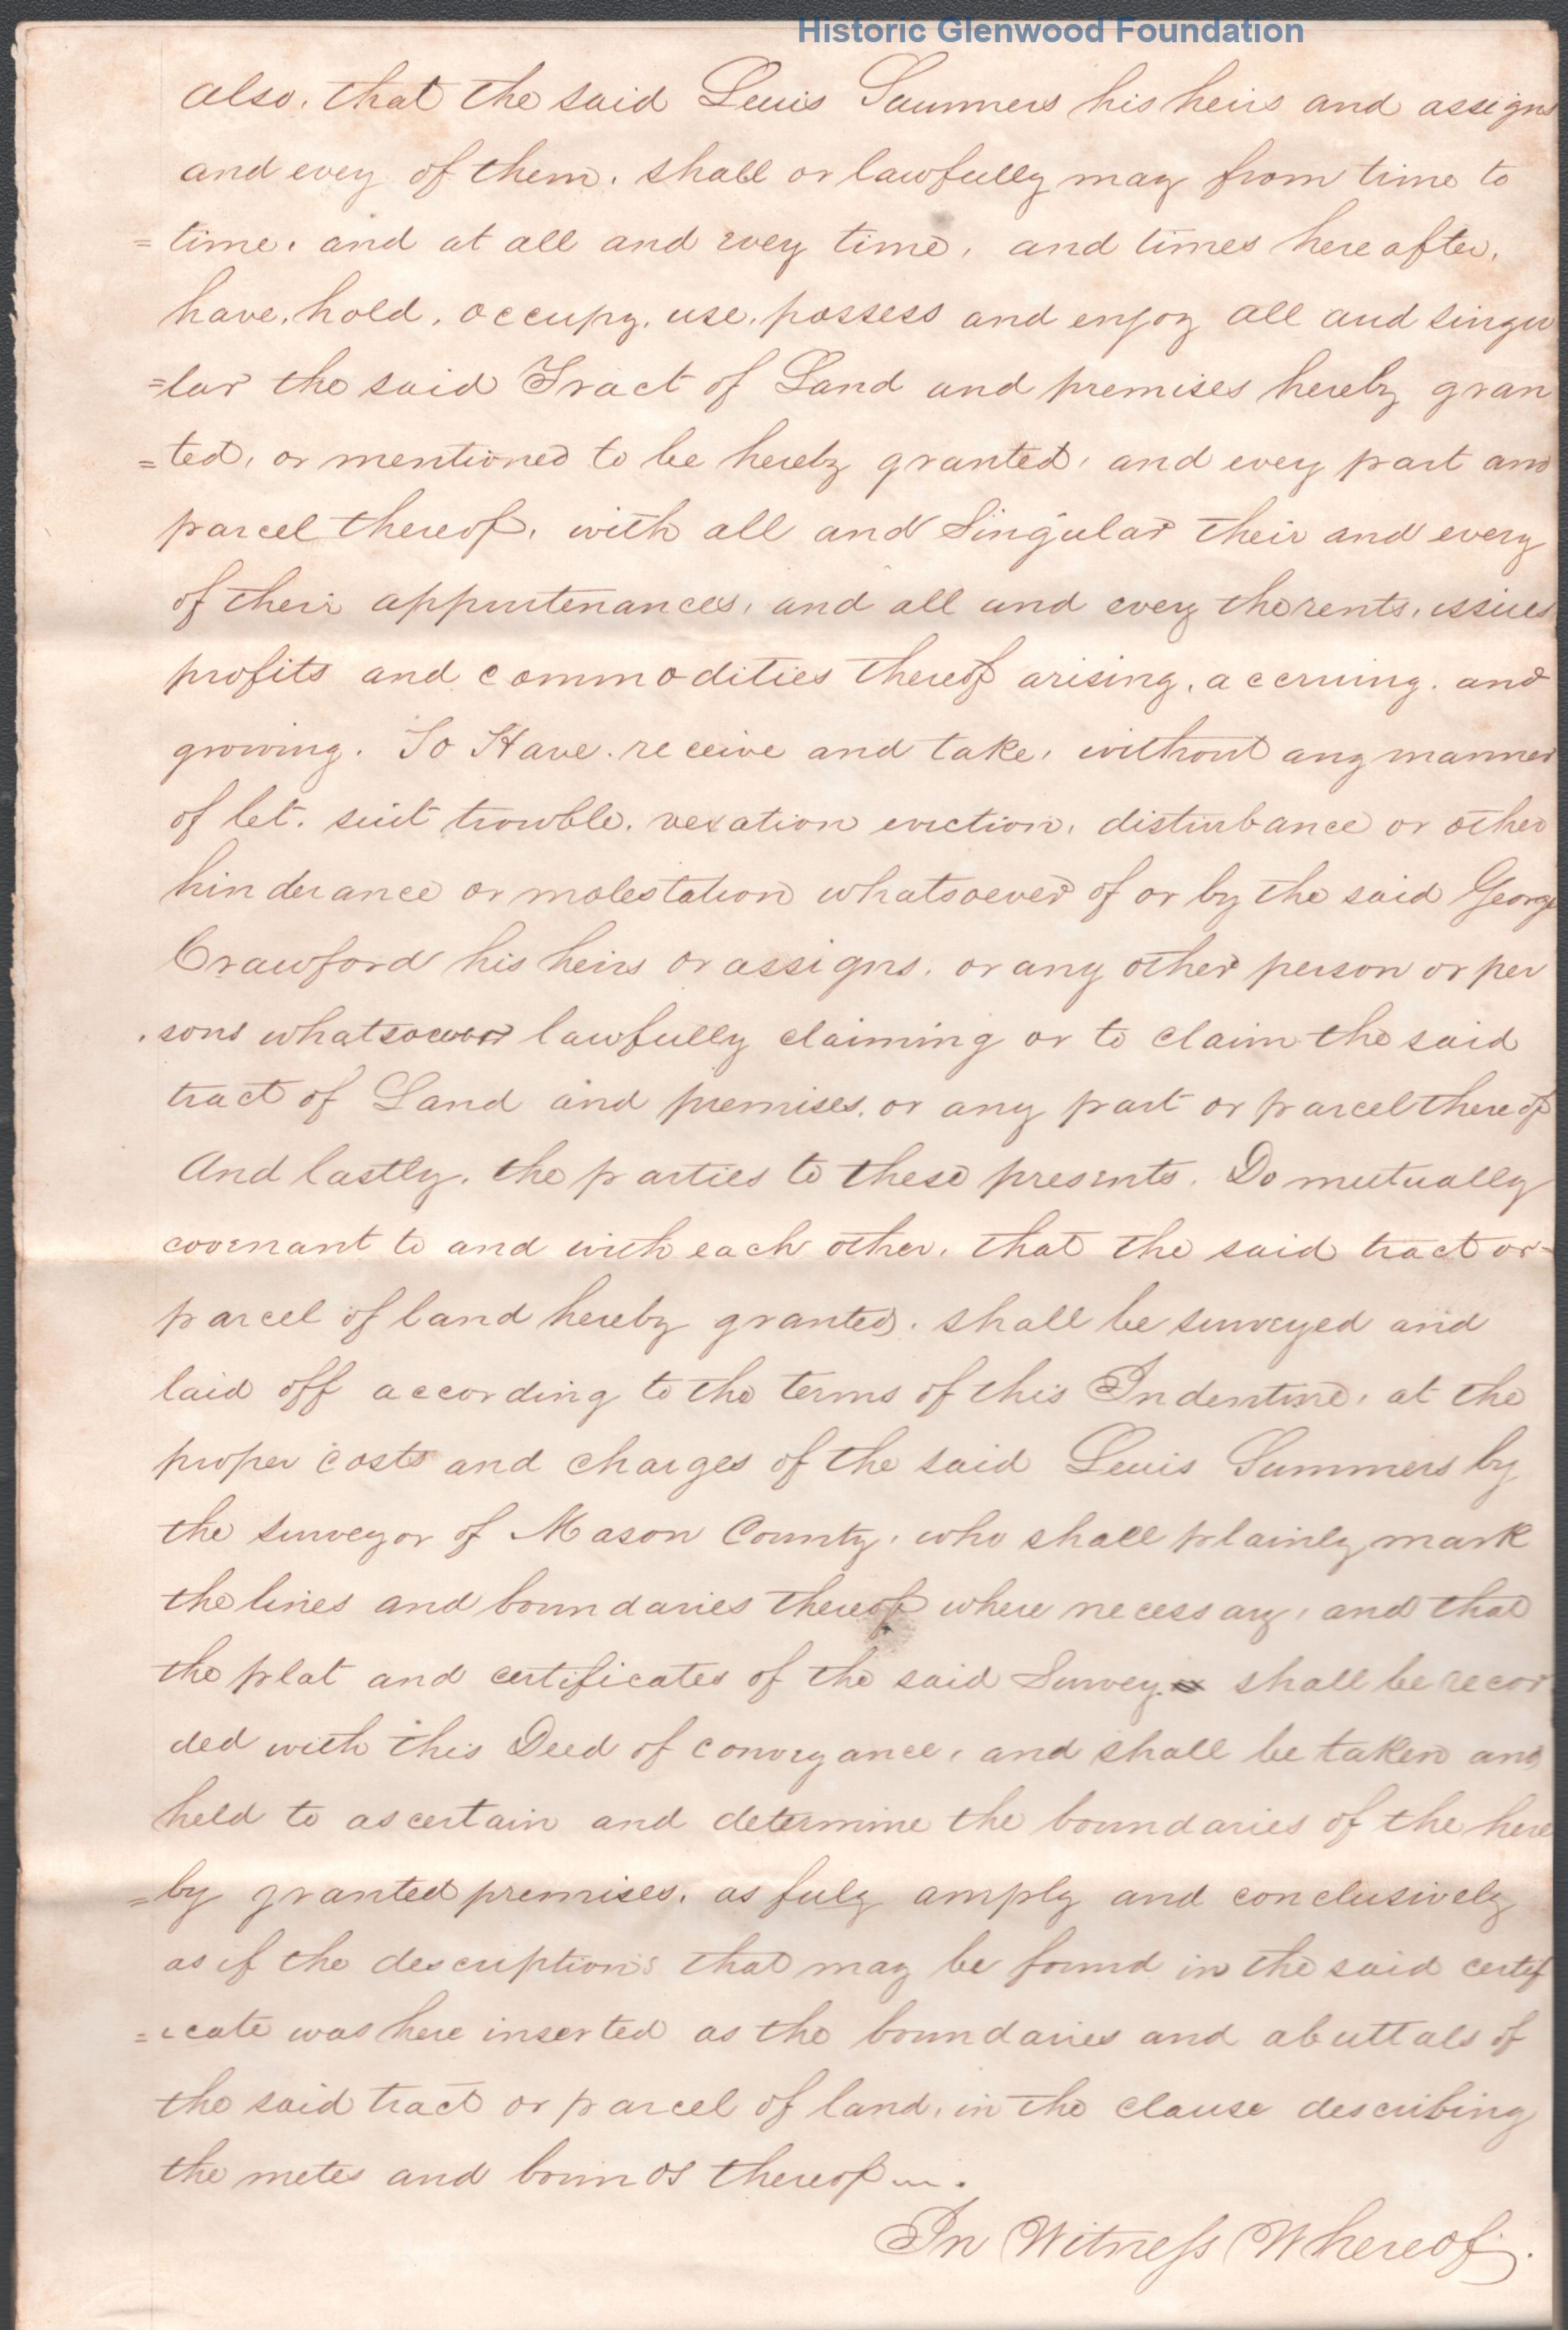 Historic Glenwood Foundation
also, that the said Lewis Summers his heirs and assigns
and evey of them, shall or lawfully may from time to
= time, and at all and evey time, and times hereafter,
have, hold, occupy, use, possess and enjoy all and singu
=lar the said Tract of Land and premises hereby gran
=ted, or mentioned to be hereby granted, and every part and
parcel thereof, with all and Singular their and every
of their appurtenances, and all and every the rents, issues
profits and commodities thereof arising, accruing, and
growing. To Have, receive and take, without any manner
of let, suit trouble, vexation eviction, disturbance or other
hinderance or molestation whatsoever of or by the said George
Crawford his heirs or assigns, or any other person or per
sons whatsoever lawfully claiming or to claim the said
tract of Land and premises, or any part or parcel thereof
And lastly, the parties to these presents, Do mutually
covenant to and with each other, that the said tract or
parcel of land hereby granted, shall be surveyed and
laid off according to the terms of this Indenture, at the
proper costs and charges of the said Lewis Summers by
the surveyor of Mason County, who shall plainly mark
the lines and boundaries thereof where necessary, and that
the plat and certificates of the said Survey shall be recor
ded with this Deed of conveyance, and shall be taken and
held to ascertain and determine the boundaries of the here
=by granted premises, as fuly amply and conclusively
as if the descriptions that may be found in the said certif
=icate was here inserted as the boundaries and abuttals of
the said tract or parcel of land, in the clause describing
the metes and bounds thereof.
In Witness Whereof.